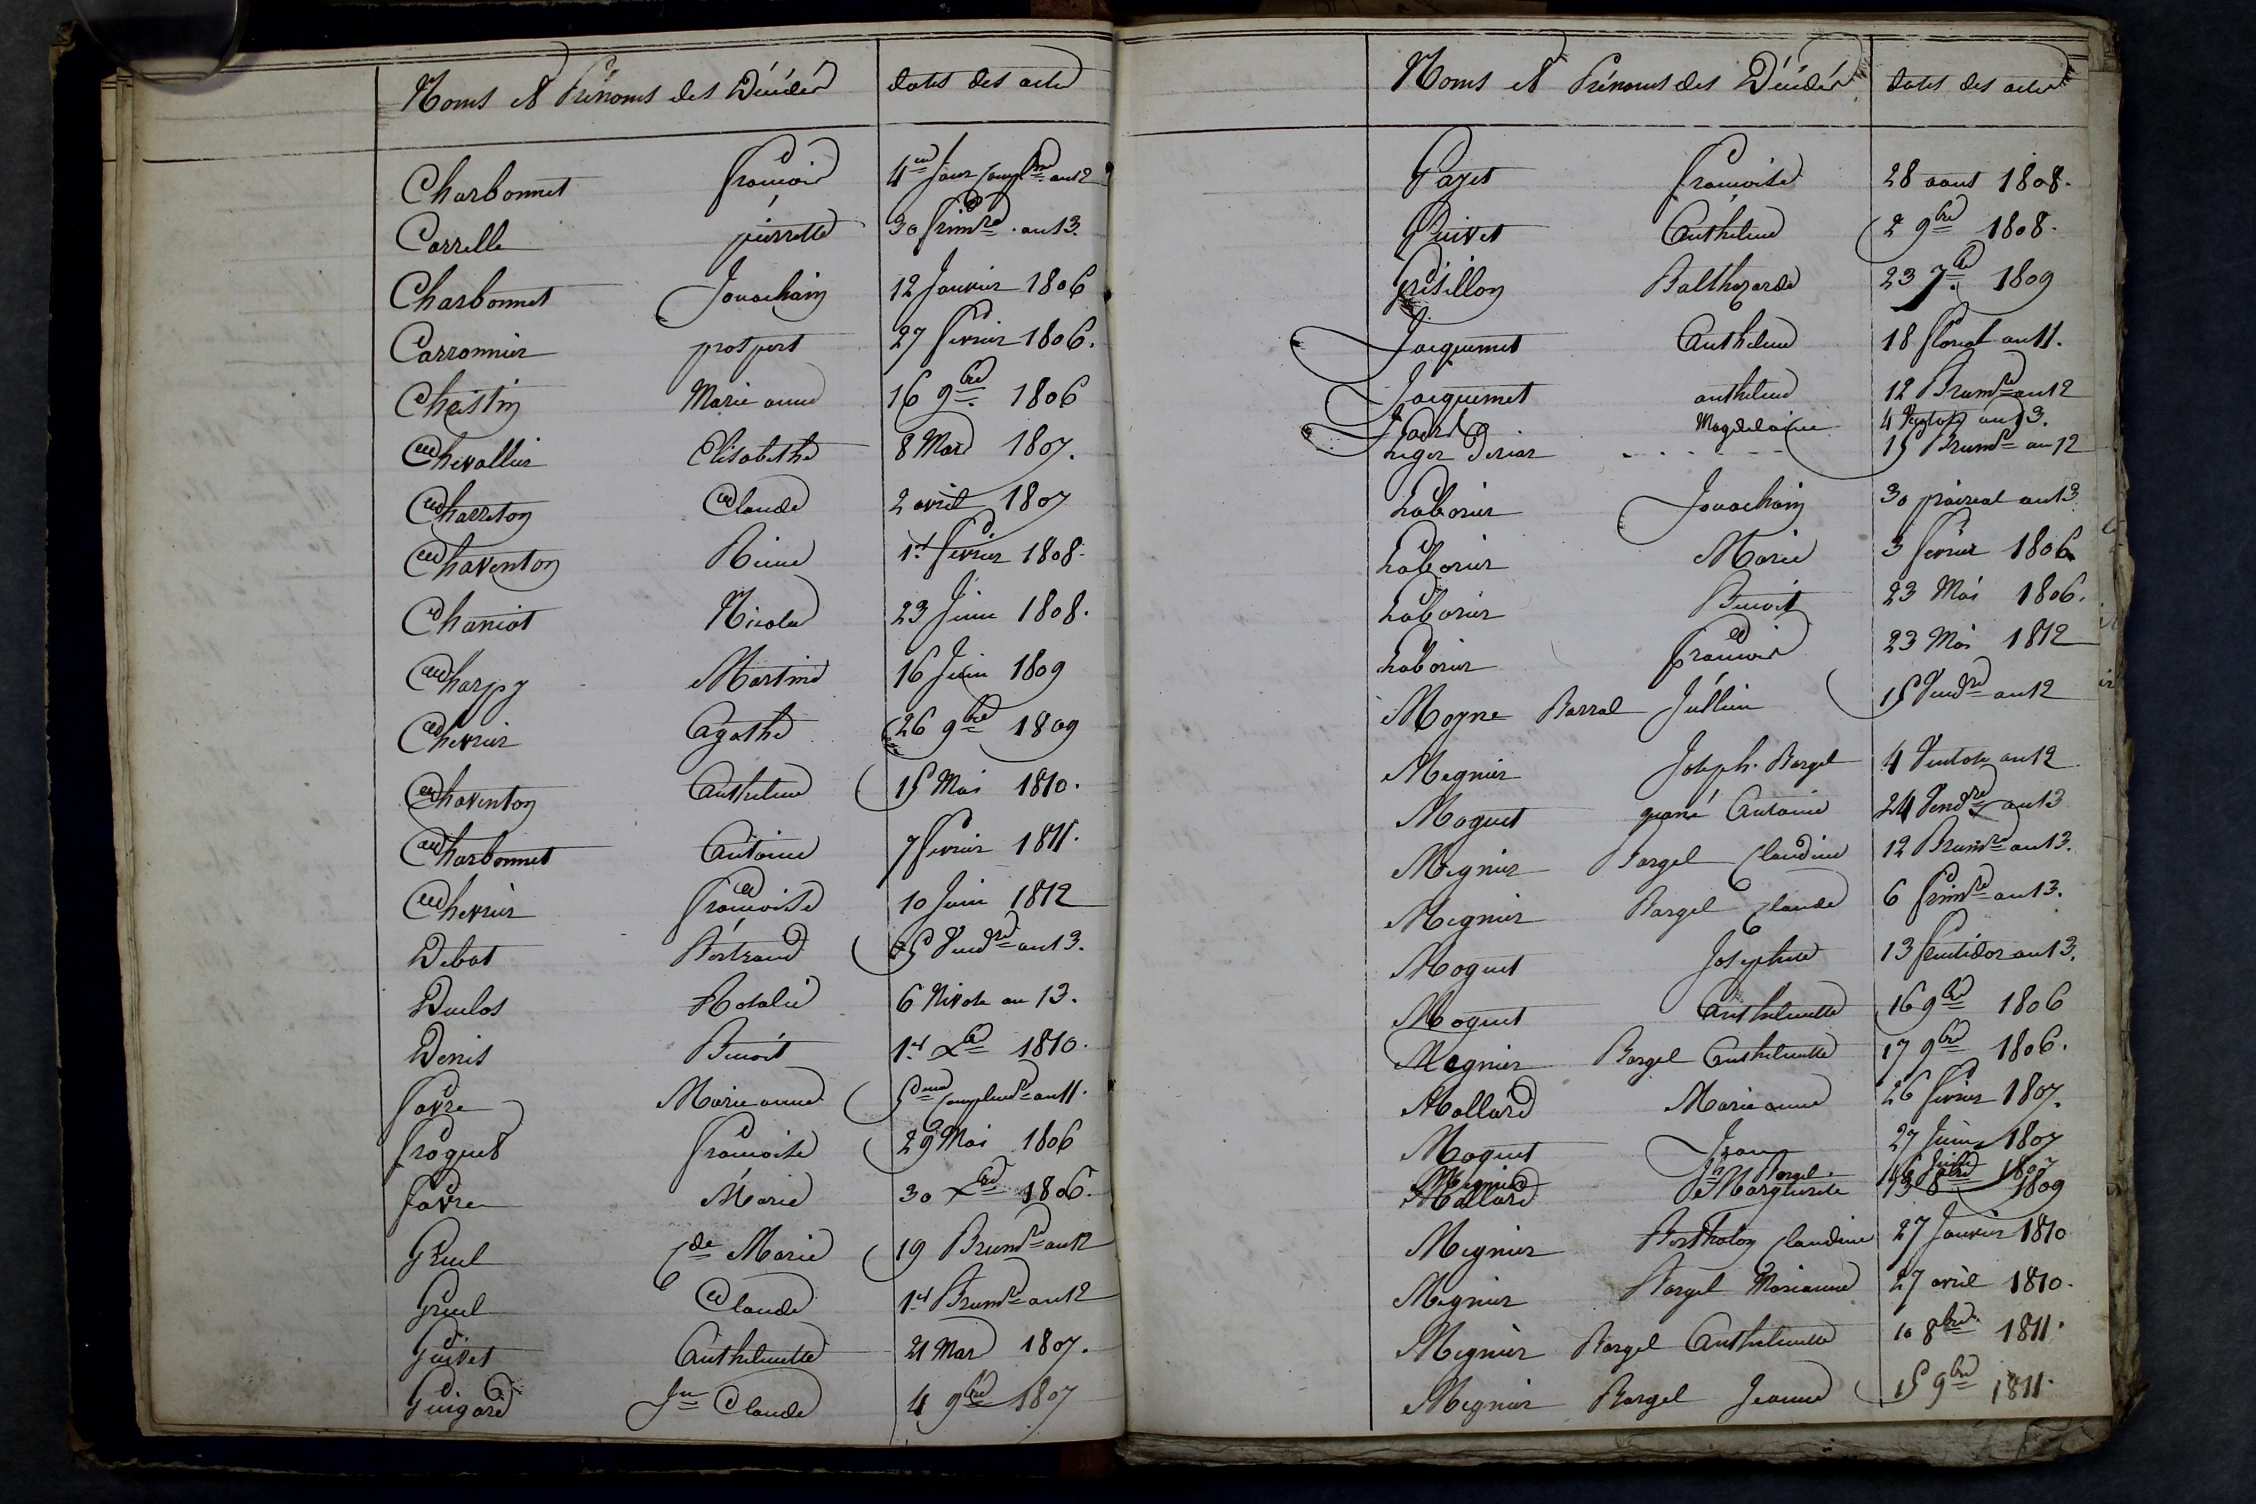 Noms et Prénoms des Décédés dates des actes
Charbonnet françois 4me Jour Compre an 12
Carrelle pierrette 30 frimre an 13.
Charbonnet Jouachain 12 Janvier 1806
Carronnier prospert 27 fevrier 1806.
Christin Marie anne 16 9bre 1806
Chevallier Elisabethe 8 Mars 1807.
Charreton Claude 2 avril 1807
Chaventon Reine 1er fevrier 1808.
Chaniot Nicolas 23 Juin 1808.
Charpy Martine 16 Juin 1809
Chevrier Agathe 26 9bre 1809
Chaventon Anthelme 15 Mai 1810.
Charbonnet Antoine 7 fevrier 1811.
Chevrier françoise 10 Juin 1812
Debat Bertrand 5 Vendre an 13.
Duclos Rosalie 6 Nivose an 13.
Denis Benoit 1er Xbre 1810.
favre Marie anne 5me Complemre an 11.
froquet françoise 29 Mai 1806
favre Marie 30 Xbre 1806.
Gruel Cde Marie 19 Brumre an 12
Gruel Claude 1er Brumre an 12
Guivet Anthelmette 21 Mars 1807.
Guigard Jn Claude 4 9bre 1807
Noms et Prénoms des Décédés dates des actes
Gazet françoise 28 aout 1808.
Guivet Anthelme 2 9bre 1808.
Grisillon Balthazarde 23 7bre 1809
Jacquemet Anthelme 18 floreal an 11.
Jacquemet anthelme 12 Brumre an 12
Magdelaine 4 Ventose an 13.
Leger 15 Brumre an 12
Laborier Jouachain 30 praireal an 13
Laborier Marie 3 fevrier 1806
Laborier Benoit 23 Mai 1806.
Laborier françois 23 Mai 1812
Moyne Barral Jullien 15 Vendre an 12
Megnier Joseph Bargel 4 Ventose an 12
Moquet Antoine 24 Vendre an 13
Megnier Bargel Claudine 12 Brumre an 13.
Megnier Bargel Claude 6 frimre an 13.
Moquet Josephte 13 fructidor an 13.
Moquet Anthelmette 16 9bre 1806
Megnier Bargel Anthelmette 17 9bre 1806.
Mollard Marie anne 26 fevrier 1807.
Moquet Jean 27 Juin 1807
Megnier Jh Bargel 1807
Mollard Marguerite 13 8bre 1809
Megnier Bertholoy Claudine 27 Janvier 1810
Megnier Bargel Marianne 27 avril 1810.
Megnier Bargel Anthelmette 10 8bre 1811.
Megnier Bargel Jeanne 15 9bre 1811.